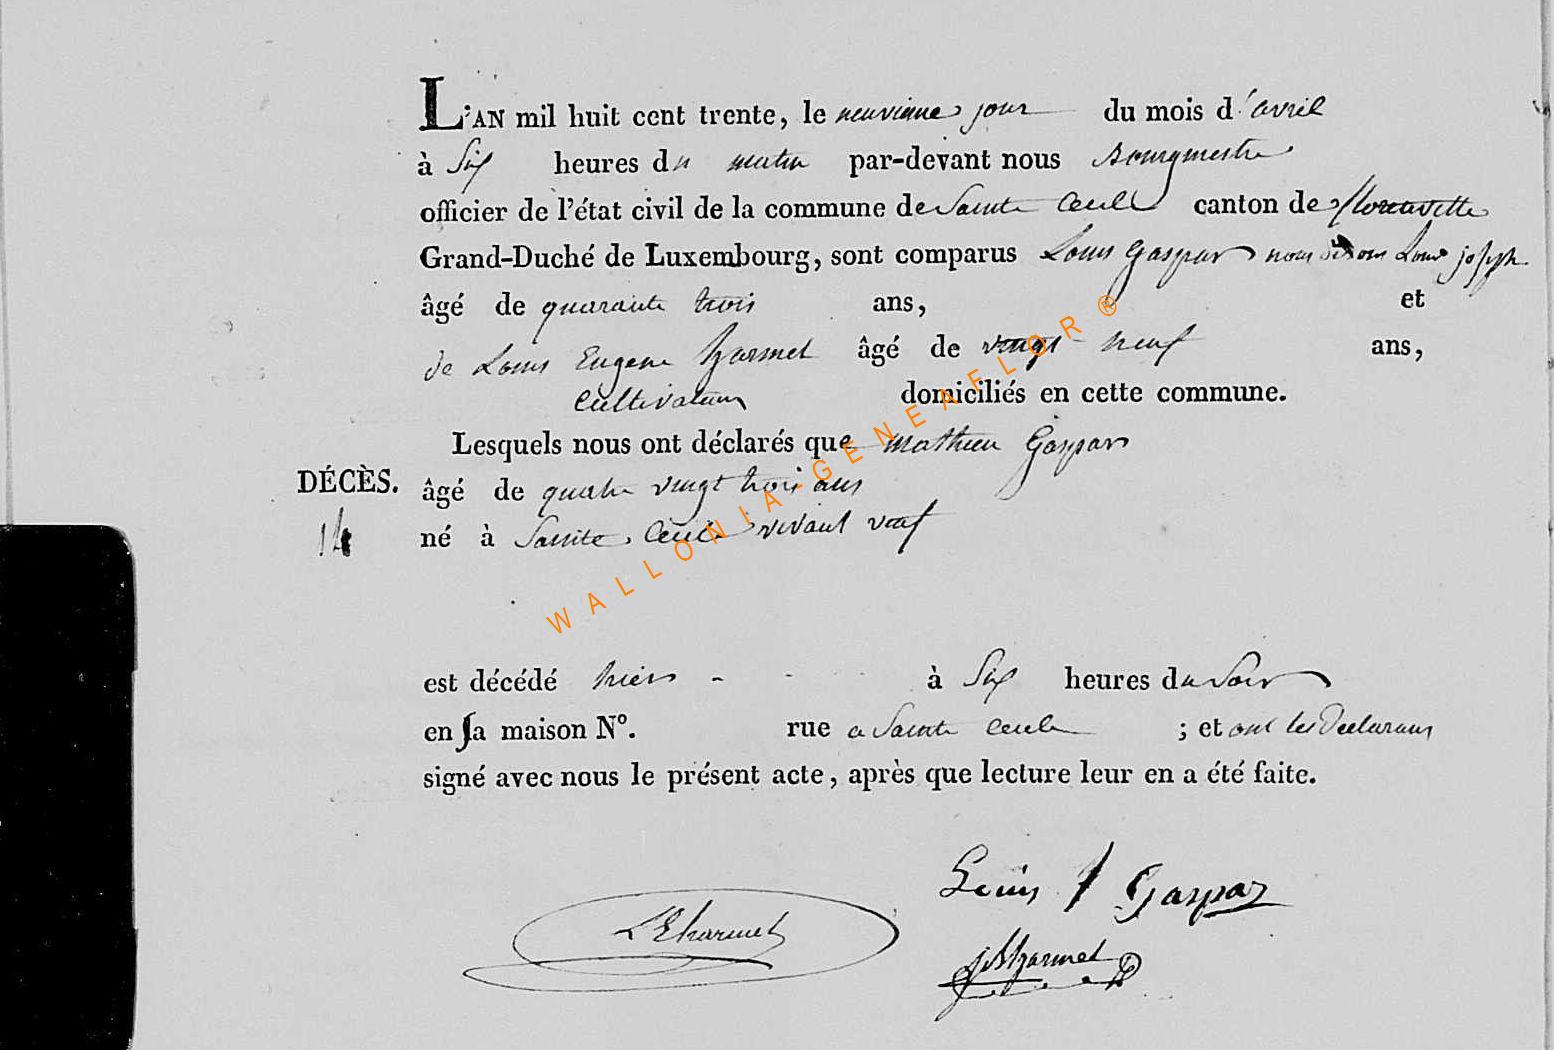 L'AN mil huit cent trente, le neuvieme jour du mois d'avril
à Six heures du matin par-devant nous Bourgmestre
officier de l'état civil de la commune de Sainte Cecile canton de florenville
Grand-Duché de Luxembourg, sont comparus Louis Gaspar nous disons Louis joseph
âgé de quarante trois ans, et
de Louis Eugene harmel âgé de vingt neuf ans,
Cultivateurs domiciliés en cette commune.
Lesquels nous ont déclarés que mathieu Gaspar
DÉCÈS. âgé de quatre vingt trois ans
14 né à Sainte Cecile vivant veuf
est décédé hier à Six heures du Soir
en sa maison N°. rue a Sainte Cecile ; et ont les Declarans
signé avec nous le présent acte, après que lecture leur en a été faite.
Louis J Gaspar
L E harmel
harmel
WALLONIA-GENEAFLOR®